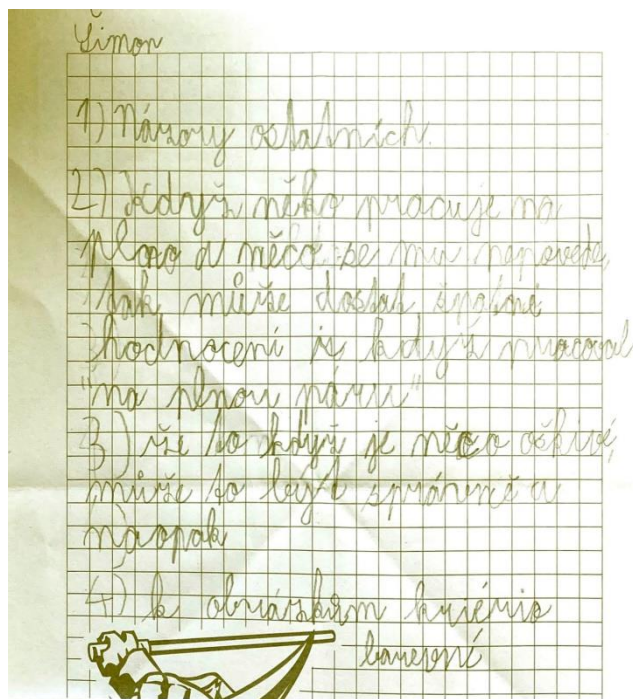 Šimon
1) Názory ostatních.
2) Když někdo pracuje na
plno a něco se mu nepovede,
tak může dostat špatné
hodnocení i když pracoval
"na plnou páru"
3) že to když je něco ošklivé,
může to být správně a
naopak
4) k obrázkům
barevní